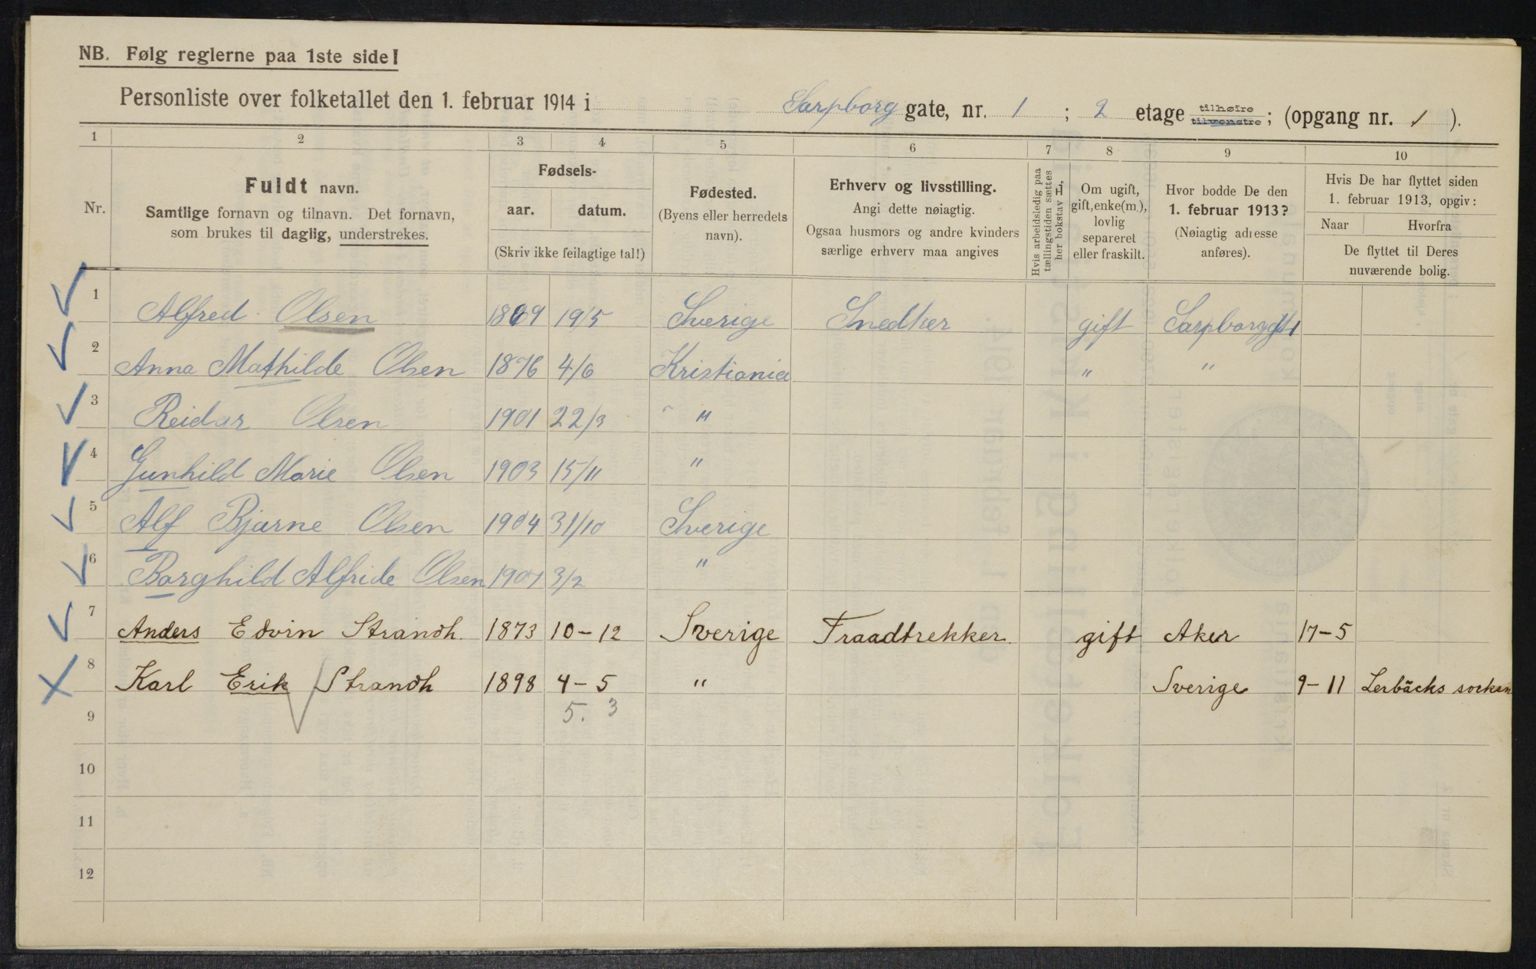 NB. Følg reglerne paa 1ste side!
Personliste over folketallet den 1. februar 1914 i Sarpborg gate, nr. 1 ; 2 etage tilhøire tilvenstre; (opgang nr. 1 ).
1 2 3 4 5 6 7 8 9 10
Nr.
Fuldt navn.
Samtlige fornavn og tilnavn. Det fornavn,
som brukes til daglig, understrekes.
Fødsels-
aar. datum.
(Skriv ikke feilagtige tal!)
Fødested.
(Byens eller herredets
navn).
Erhverv og livsstilling.
Angi dette nøiagtig.
Ogsaa husmors og andre kvinders
særlige erhverv maa angives
Hvis arbeidsledig paa
tællingstiden sættes
her bokstav L.
Om ugift,
gift, enke(m.),
lovlig
separeret
eller fraskilt.
Hvor bodde De den
1. februar 1913?
(Nøiagtig adresse
anføres).
Hvis De har flyttet siden
1. februar 1913, opgiv:
Naar Hvorfra
De flyttet til Deres
nuværende bolig.
1 Alfred Olsen 1869 19/5 Sverige Snedker gift Sarpborggt 1
2 Anna Mathilde Olsen 1876 4/6 Kristiania " "
3 Reidar Olsen 1901 22/3 "
4 Gunhild Marie Olsen 1903 15/11 "
5 Alf Bjarne Olsen 1904 31/10 Sverige
6 Borghild Alfride Olsen 1907 3/2 "
7 Anders Edvin Strandh. 1873 10-12 Sverige Traadtrekker. gift Aker 17-5
8 Karl Erik Strandh 1898 4-5 " Sverige 9-11 Lerbäcks socken
9 5. 3
10
11
12